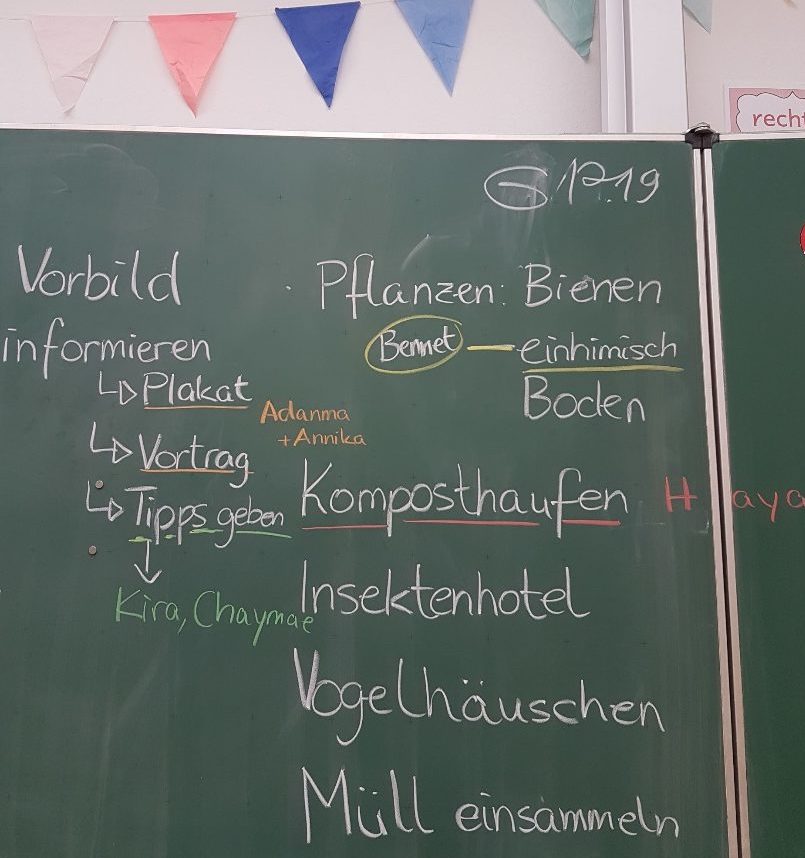 17.19
recht
Vorbild
informieren
↳ Plakat
Adanma
+Annika
↳ Vortrag
↳ Tipps geben
Kira, Chaymae
· Pflanzen: Bienen
Bennet — einhimisch
Boden
Komposthaufen H aya
Insektenhotel
Vogelhäuschen
Müll einsammeln